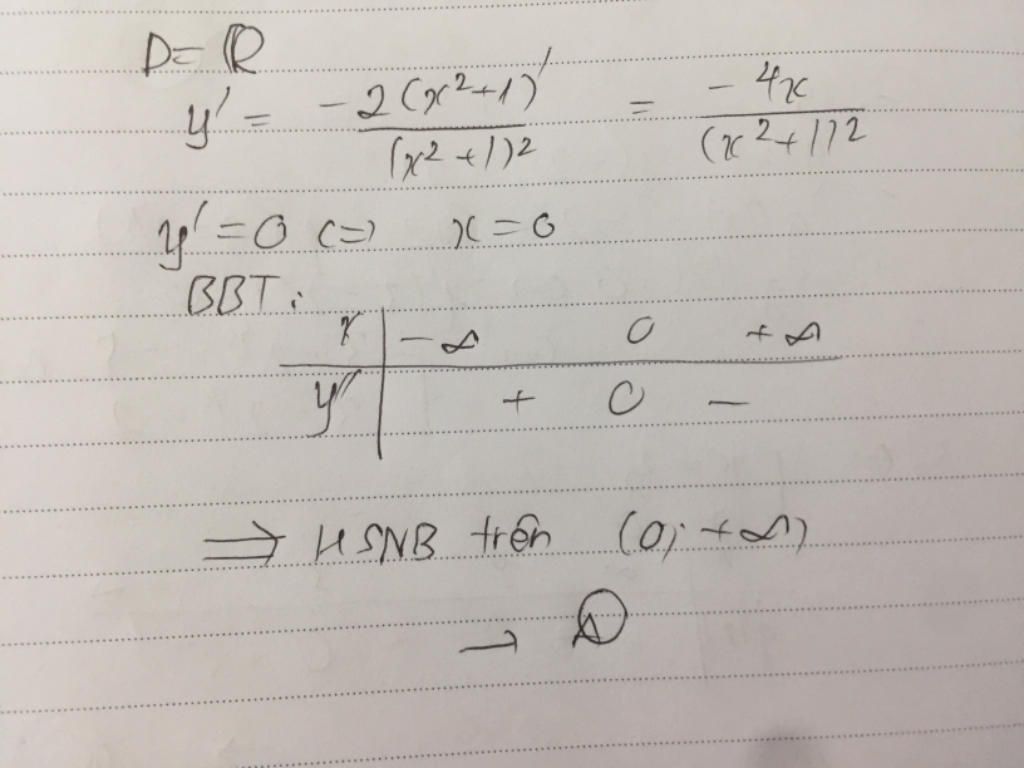 D = ℝ
y' = -2(x²+1)' / (x²+1)² = -4x / (x²+1)²
y' = 0 <=> x = 0
BBT:
x | -∞ 0 +∞
y' | + 0 -
=> HSNB trên (0; +∞)
→ A